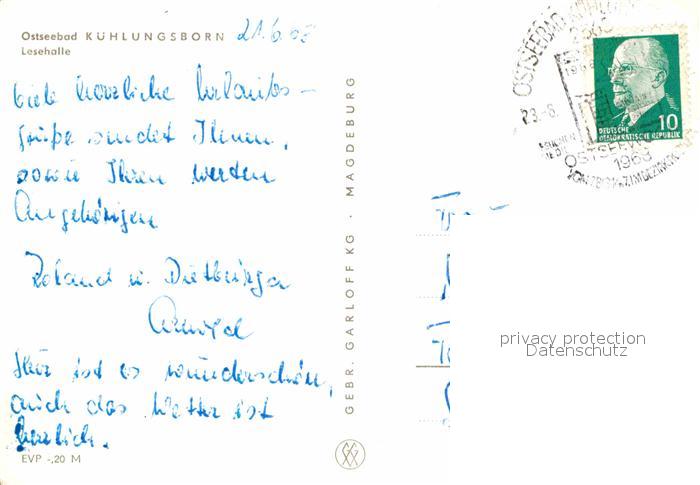 Ostseebad KÜHLUNGSBORN 21.6.68
Lesehalle
Viele herzliche Urlaubs-
grüße sendet Ihnen,
sowie Ihren werten
Angehörigen
Roland u.
Hier ist es wunderschön,
auch das Wetter ist
herrlich.
EVP -,20 M
GEBR. GARLOFF KG · MAGDEBURG
OSTSEEBAD
10
DEUTSCHE
DEMOKRATISCHE REPUBLIK
1968
privacy protection
Datenschutz